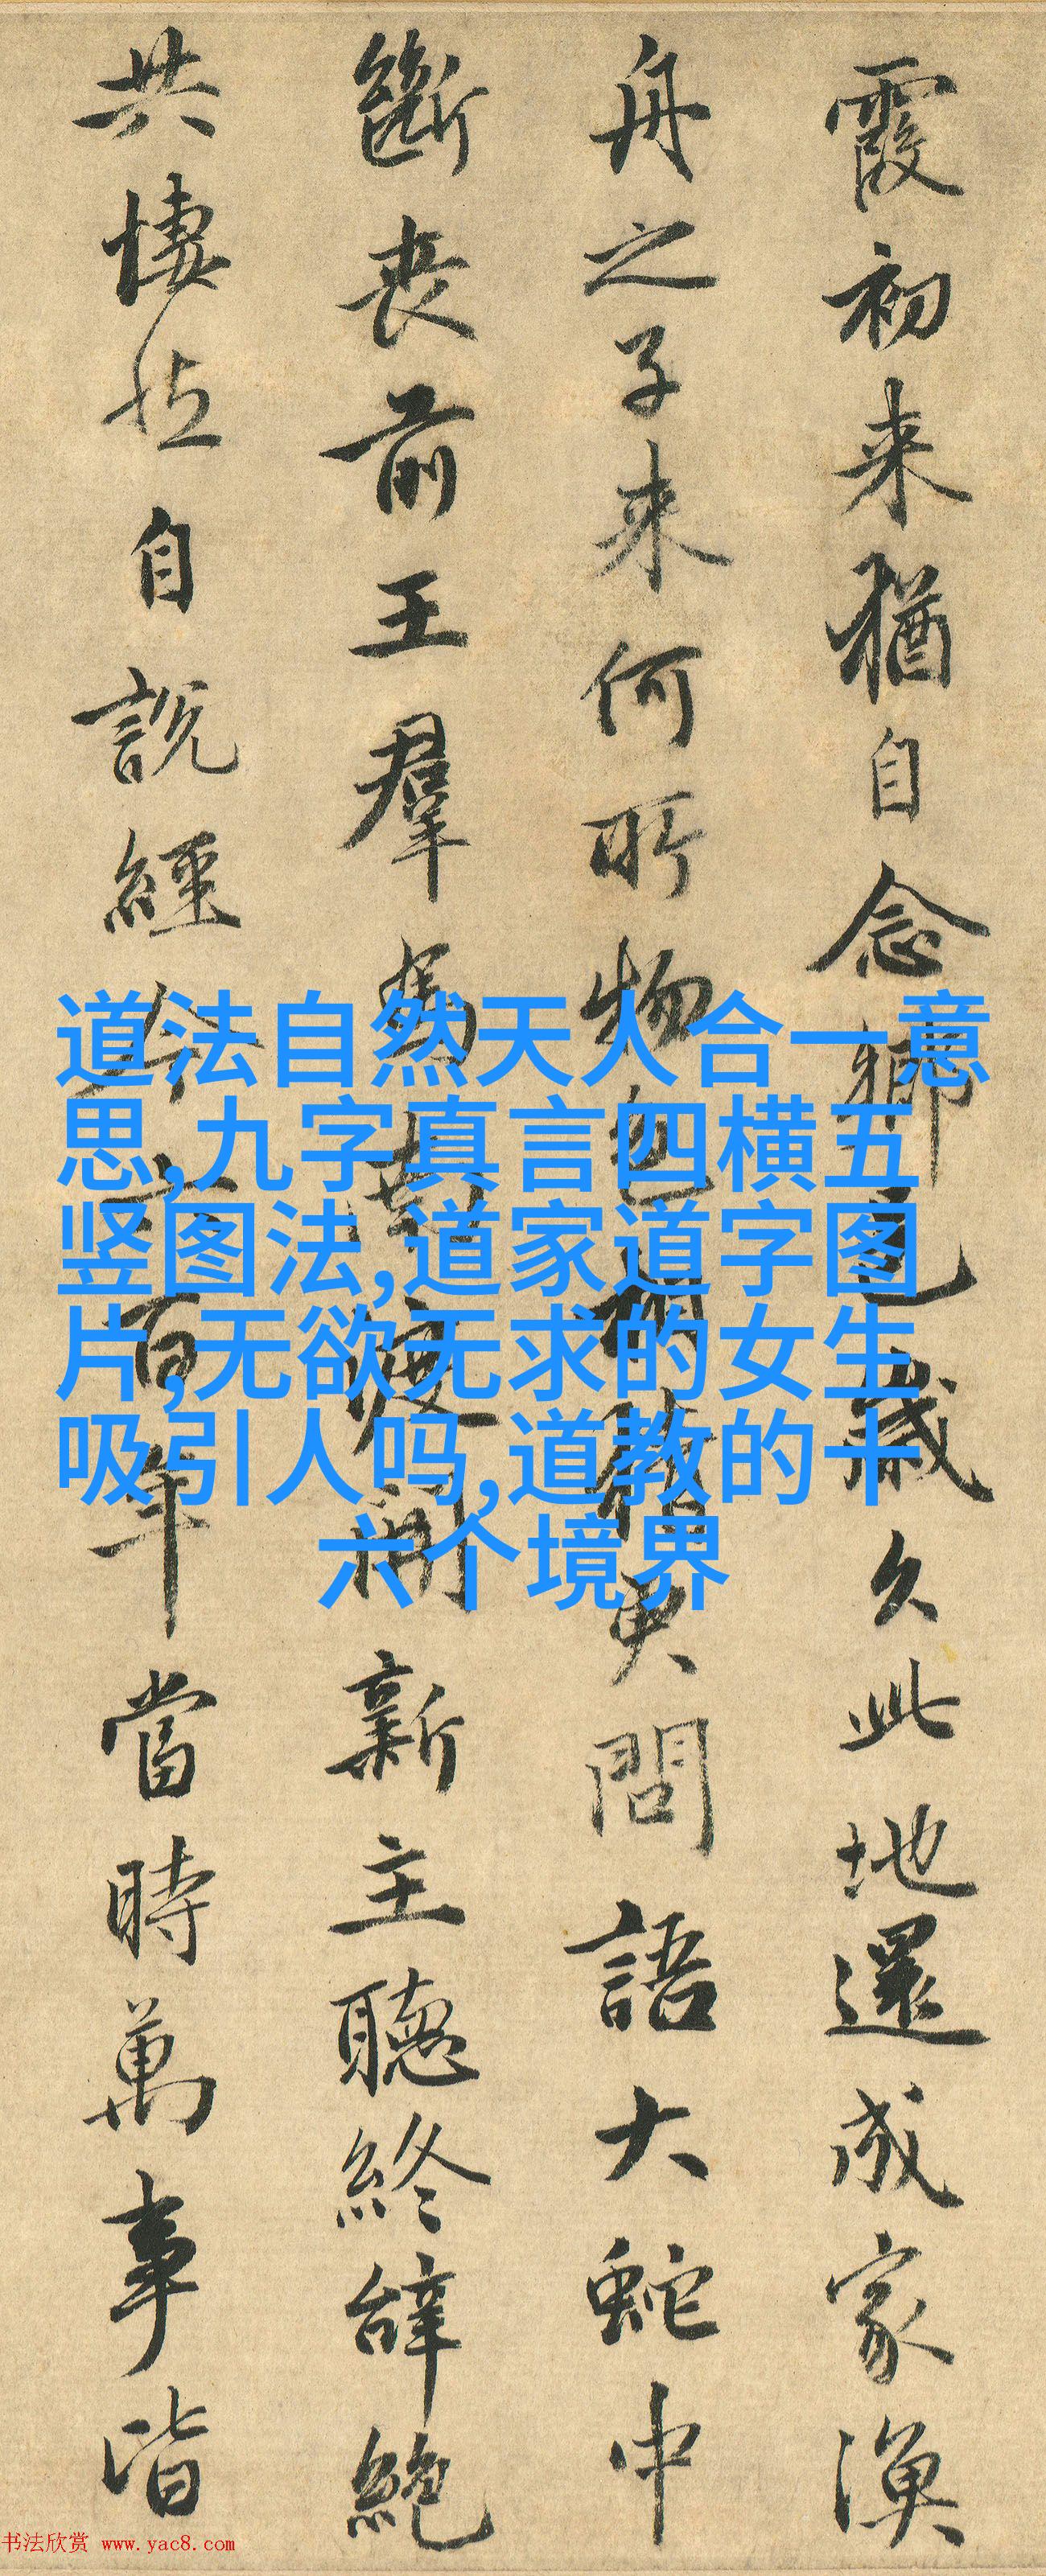 霞初来猶自念鄉邑歲久此地還成家漁
舟之子来何所物色相猜更問語大蛇中
斷喪前王羣馬南渡開新主聽終辭絶
共悽然自說經今六百年當時萬事皆
道法自然天人合一意
思,九字真言四横五
竖图法,道家道字图
片,无欲无求的女生
吸引人吗,道教的十
六个境界
书法欣赏 www.yac8.com